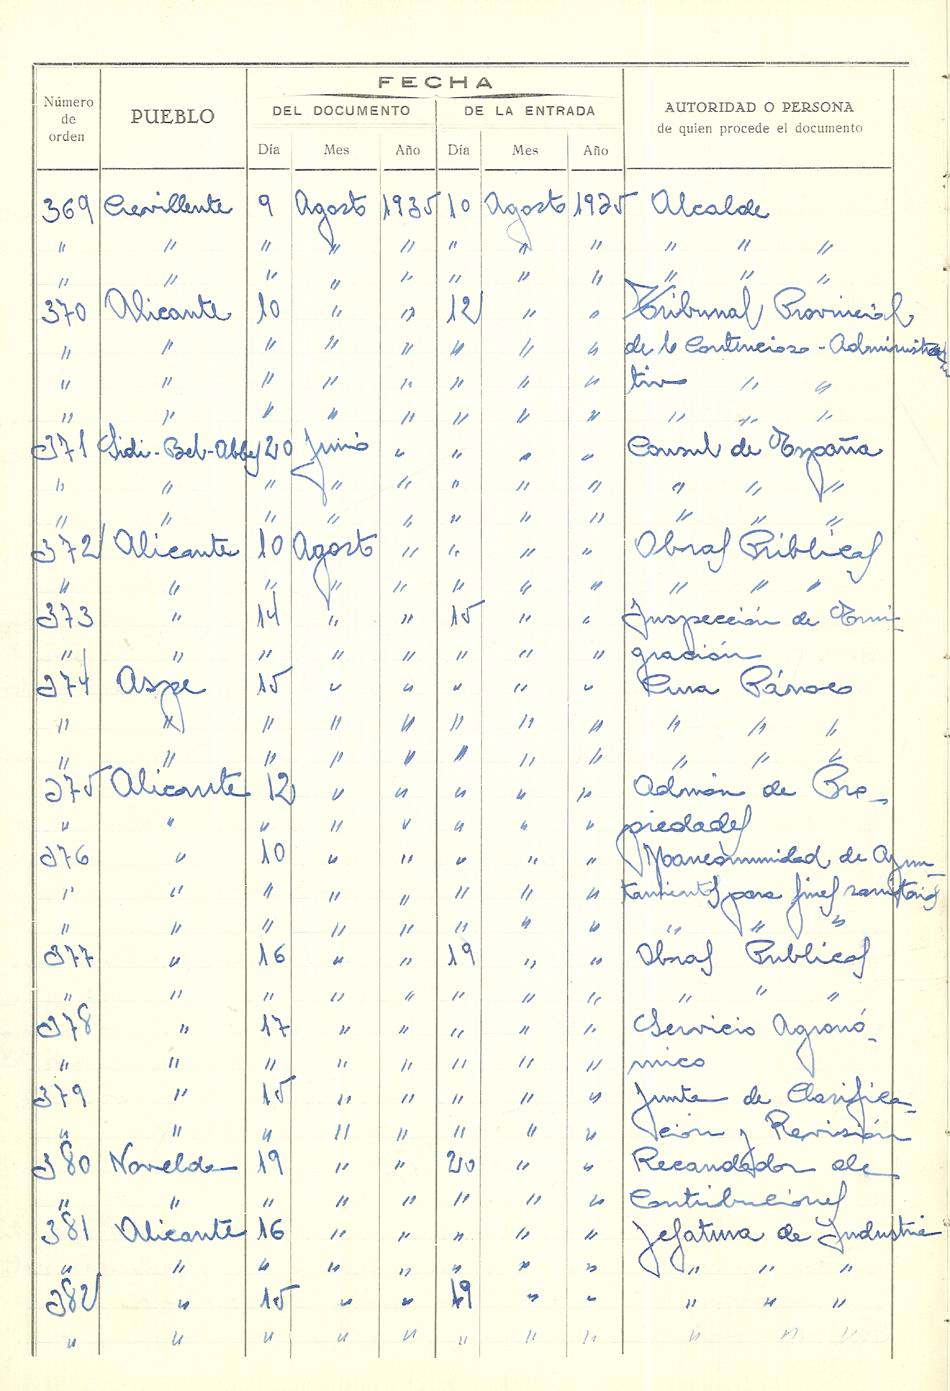 FECHA
Número de orden PUEBLO DEL DOCUMENTO DE LA ENTRADA AUTORIDAD O PERSONA de quien procede el documento
Día Mes Año Día Mes Año
369 Crevillente 9 Agosto 1935 10 Agosto 1935 Alcalde
" " " " " " " " " " "
" " " " " " " " " " "
370 Alicante 10 " " 12 " " Tribunal Provincial
" " " " " " " " de lo Contencioso-Administra
" " " " " " " " tivo " "
" " " " " " " " " " "
371 Sidi-Bel-Abbes 20 Junio " " " " Consul de España
" " " " " " " " " " "
" " " " " " " " " " "
372 Alicante 10 Agosto " " " " Obras Públicas
" " " " " " " " " " "
373 " 14 " " 15 " " Inspección de Emi-
" " " " " " " " gración
374 Aspe 15 " " " " " Cura Párroco
" " " " " " " " " " "
" " " " " " " " " " "
375 Alicante 12 " " " " " Admón de Pro-
" " " " " " " " piedades
376 " 10 " " " " " Mancomunidad de Ayun-
" " " " " " " " tamientos para fines sanitarios
" " " " " " " " " " "
377 " 16 " " 19 " " Obras Publicas
" " " " " " " " " " "
378 " 17 " " " " " Servicio Agronó-
" " " " " " " " mico
379 " 15 " " " " " Junta de Clasifica-
" " " " " " " " ción y Revisión
380 Novelda 19 " " 20 " " Recaudador de
" " " " " " " " Contribuciones
381 Alicante 16 " " " " " Jefatura de Industria
" " " " " " " " " " "
382 " 15 " " 19 " " " " "
" " " " " " " " " " "